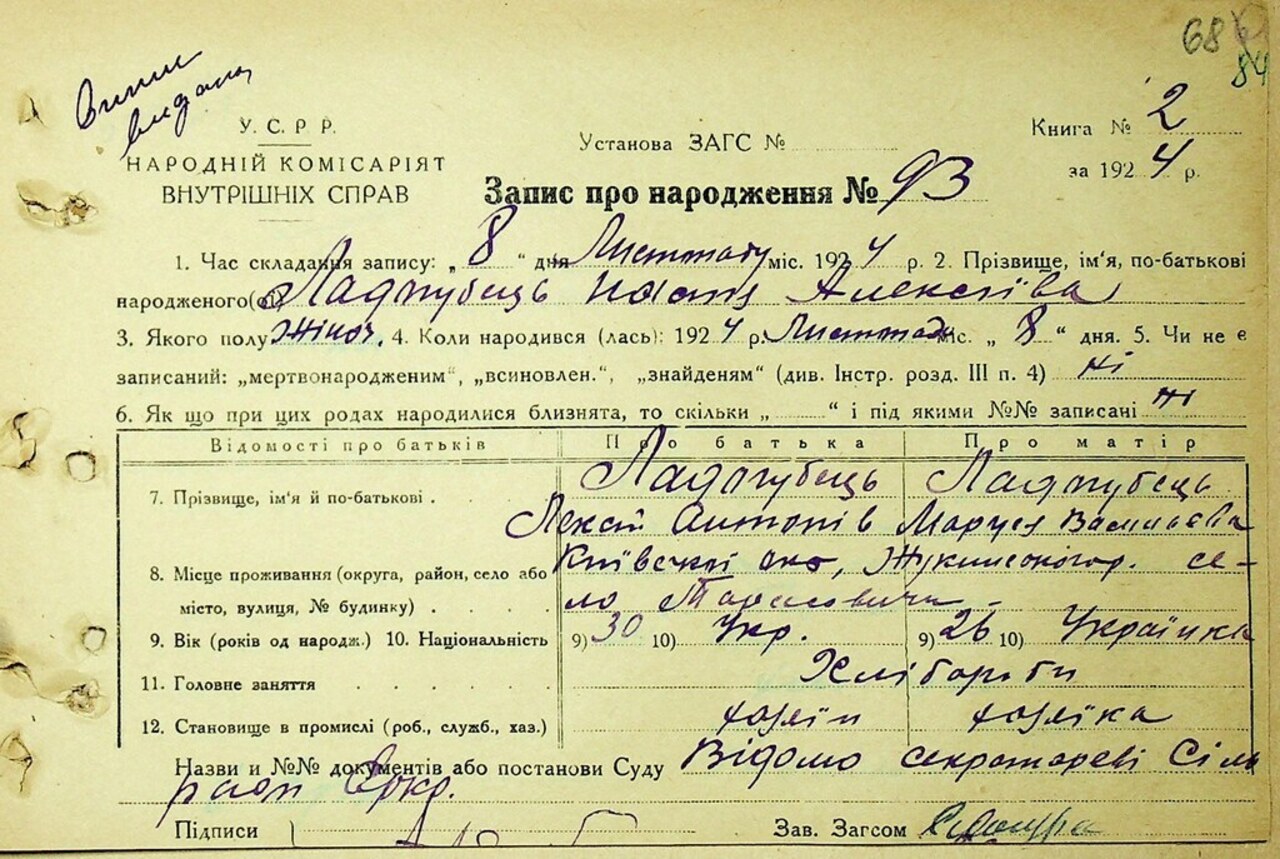 68
84
Випис
видана
У. С. Р. Р.
НАРОДНІЙ КОМІСАРІЯТ
ВНУТРІШНІХ СПРАВ
Установа ЗАГС №
Книга № 2
за 1924 р.
Запис про народження № 93
1. Час складання запису: „ 8 “ дня Листпаду міс. 1924 р. 2. Прізвище, ім'я, по-батькові
народженого(ої) Ладпубець Алексіїва
3. Якого полу Жіноч. 4. Коли народився (лась): 1924 р. Листпаду міс. „ 8 “ дня. 5. Чи не є
записаний: „мертвонародженим“, „всиновлен.“, „знайденям“ (див. Інстр. розд. III п. 4) ні
6. Як що при цих родах народилися близнята, то скільки „ “ і під якими №№ записані ні
Відомості про батьків Про батька Про матір
7. Прізвище, ім'я й по-батькові . Ладпубець Ладпубець
Лексій Антонів Маруся Васильєва
8. Місце проживання (округа, район, село або Київської окр, се-
місто, вулиця, № будинку) . . . . ло Тарасовичи -
9. Вік (років од народж.) 10. Національність 9) 30 10) Укр. 9) 26 10) Українка
11. Головне заняття . . . . . Хлібороби
12. Становище в промислі (роб., служб., хаз.) хозяїн хозяїка
Назви и №№ документів або постанови Суду Відомо секретареві Сіль
ради
Підписи
Зав. Загсом